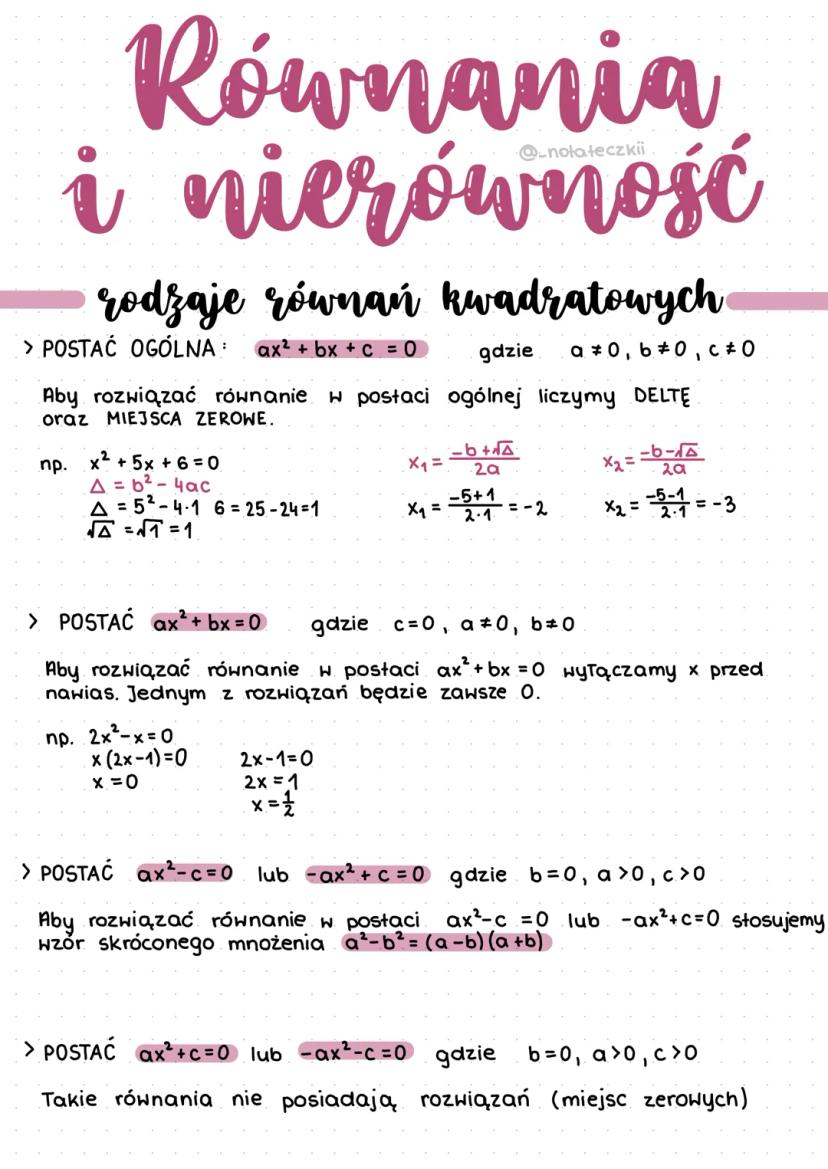 Równania
@_notateczkii
i nierówność
rodzaje równań kwadratowych
> POSTAĆ OGÓLNA: ax² + bx + c = 0 gdzie a ≠ 0, b ≠ 0, c ≠ 0
Aby rozwiązać równanie w postaci ogólnej liczymy DELTĘ
oraz MIEJSCA ZEROWE.
np. x² + 5x + 6 = 0
Δ = b² - 4ac
Δ = 5² - 4·1 6 = 25 - 24 = 1
√Δ = √1 = 1
x₁ = (-b+√Δ)/2a x₂ = (-b-√Δ)/2a
x₁ = (-5+1)/(2·1) = -2 x₂ = (-5-1)/(2·1) = -3
> POSTAĆ ax² + bx = 0 gdzie c=0, a≠0, b≠0
Aby rozwiązać równanie w postaci ax² + bx = 0 wyłączamy x przed
nawias. Jednym z rozwiązań będzie zawsze 0.
np. 2x² - x = 0
x(2x-1)=0 2x-1=0
x = 0 2x = 1
x = 1/2
> POSTAĆ ax² - c = 0 lub -ax² + c = 0 gdzie b=0, a>0, c>0
Aby rozwiązać równanie w postaci ax² - c = 0 lub -ax² + c = 0 stosujemy
wzór skróconego mnożenia a² - b² = (a-b)(a+b)
> POSTAĆ ax² + c = 0 lub -ax² - c = 0 gdzie b=0, a>0, c>0
Takie równania nie posiadają rozwiązań (miejsc zerowych)